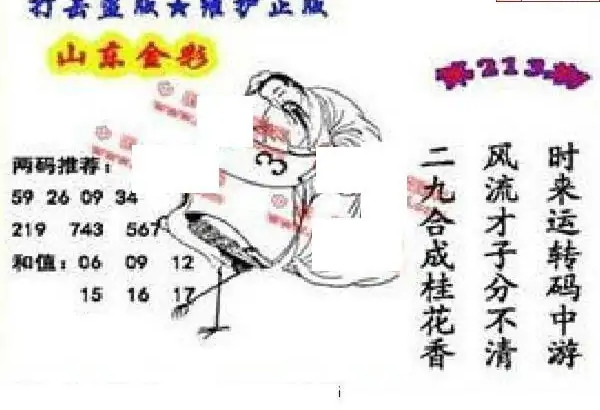 打击盗版★维护正版
山东金彩
第213期
两码推荐：
59 26 09 34
219 743 567
和值：06 09 12
15 16 17
3
时来运转码中游
风流才子分不清
二九合成桂花香
i